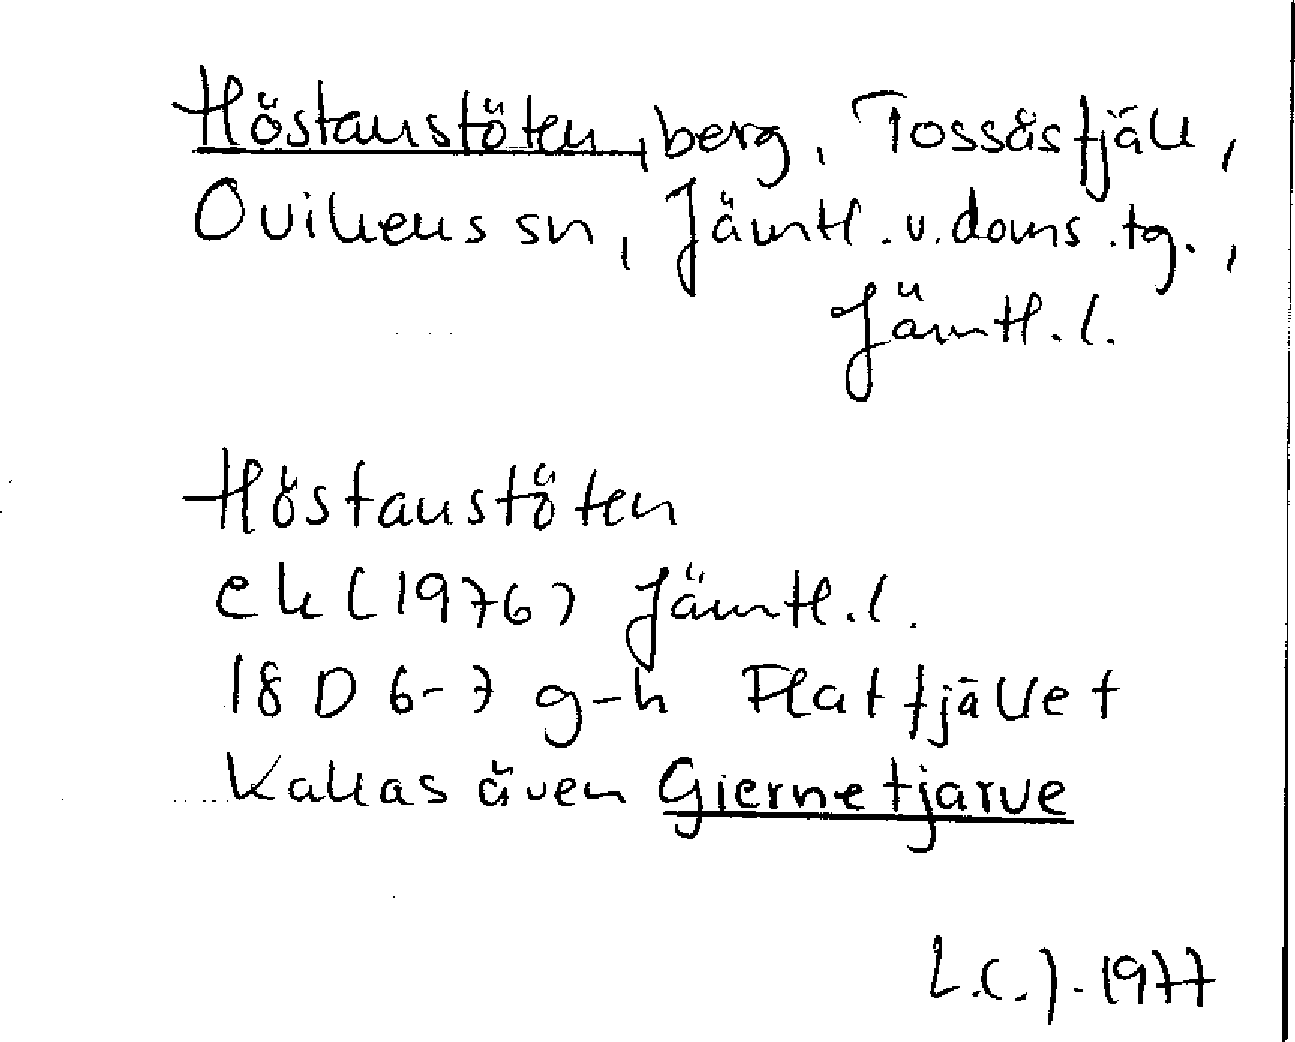 Höstanstöten, berg, Tossåsfjäll,
Ovikens sn, Jämtl. v. doms. tg.,
Jämtl. l.
Höstanstöten
ek (1976) Jämtl. l.
18 D 6-7 g-h Flatfjället
Kallas även Giernetjarve
L.C.J. 1977